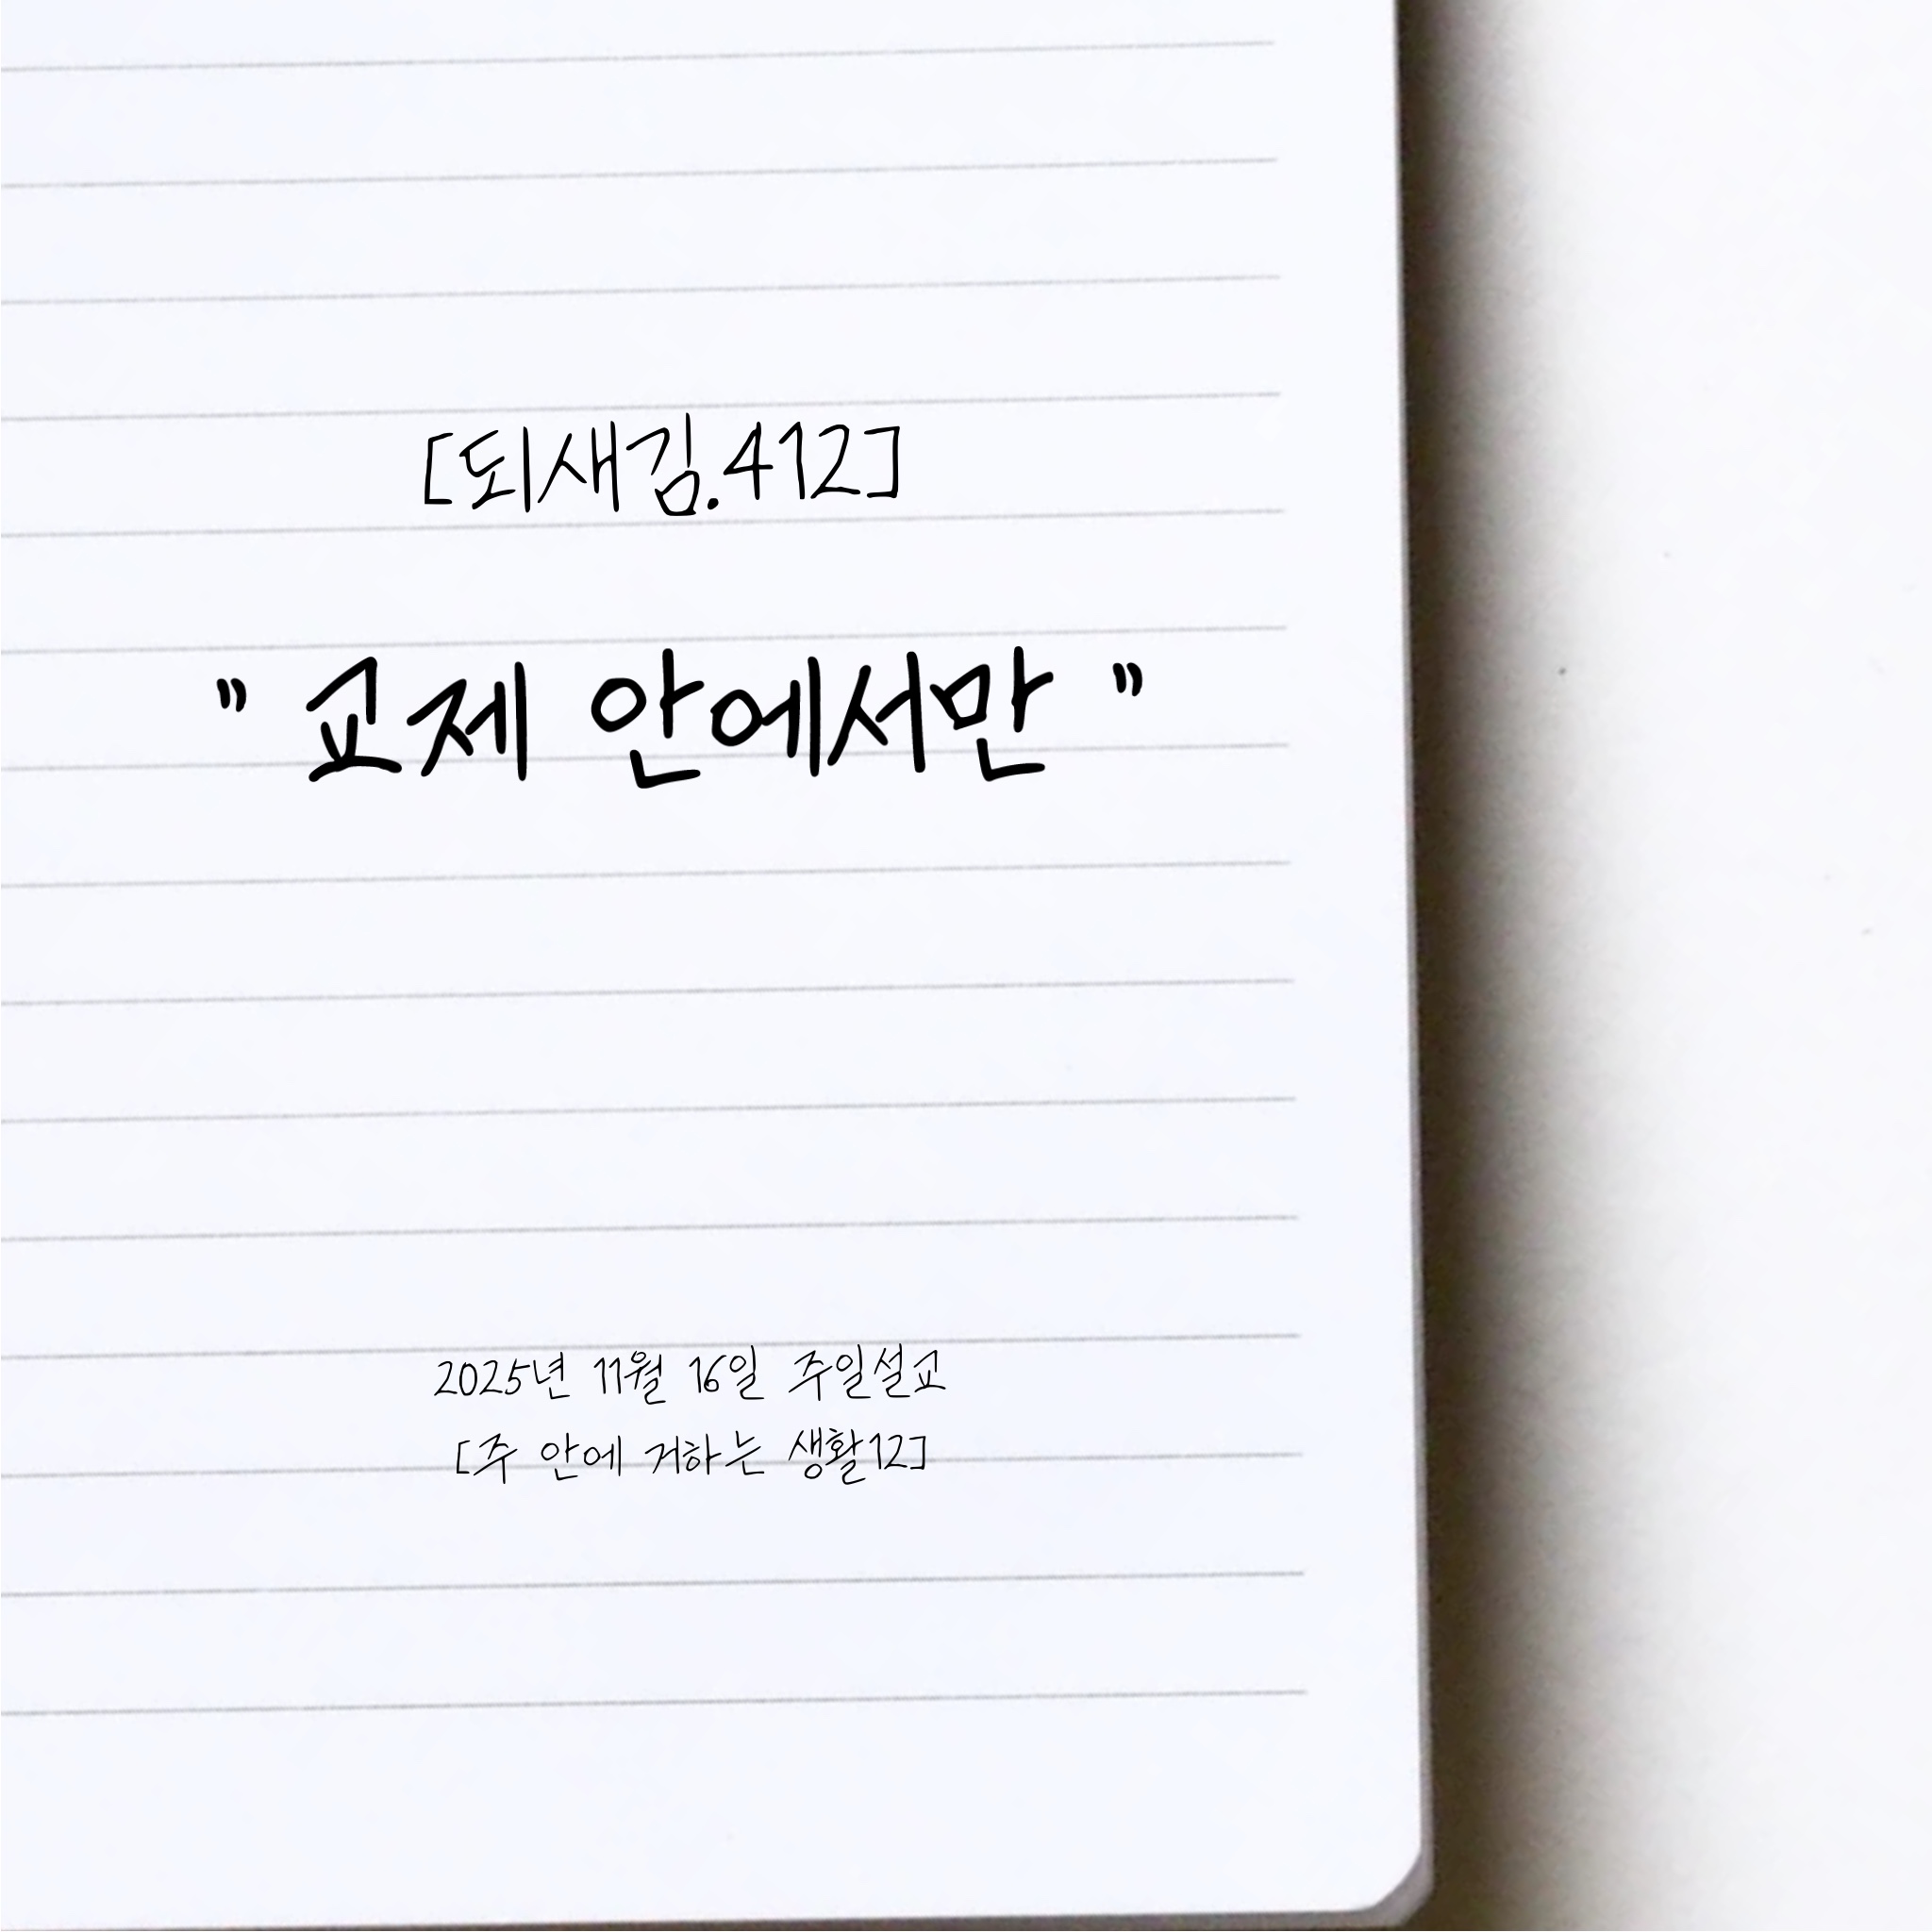 [되새김.412]
" 교제 안에서만 "
2025년 11월 16일 주일설교
[주 안에 거하는 생활12]